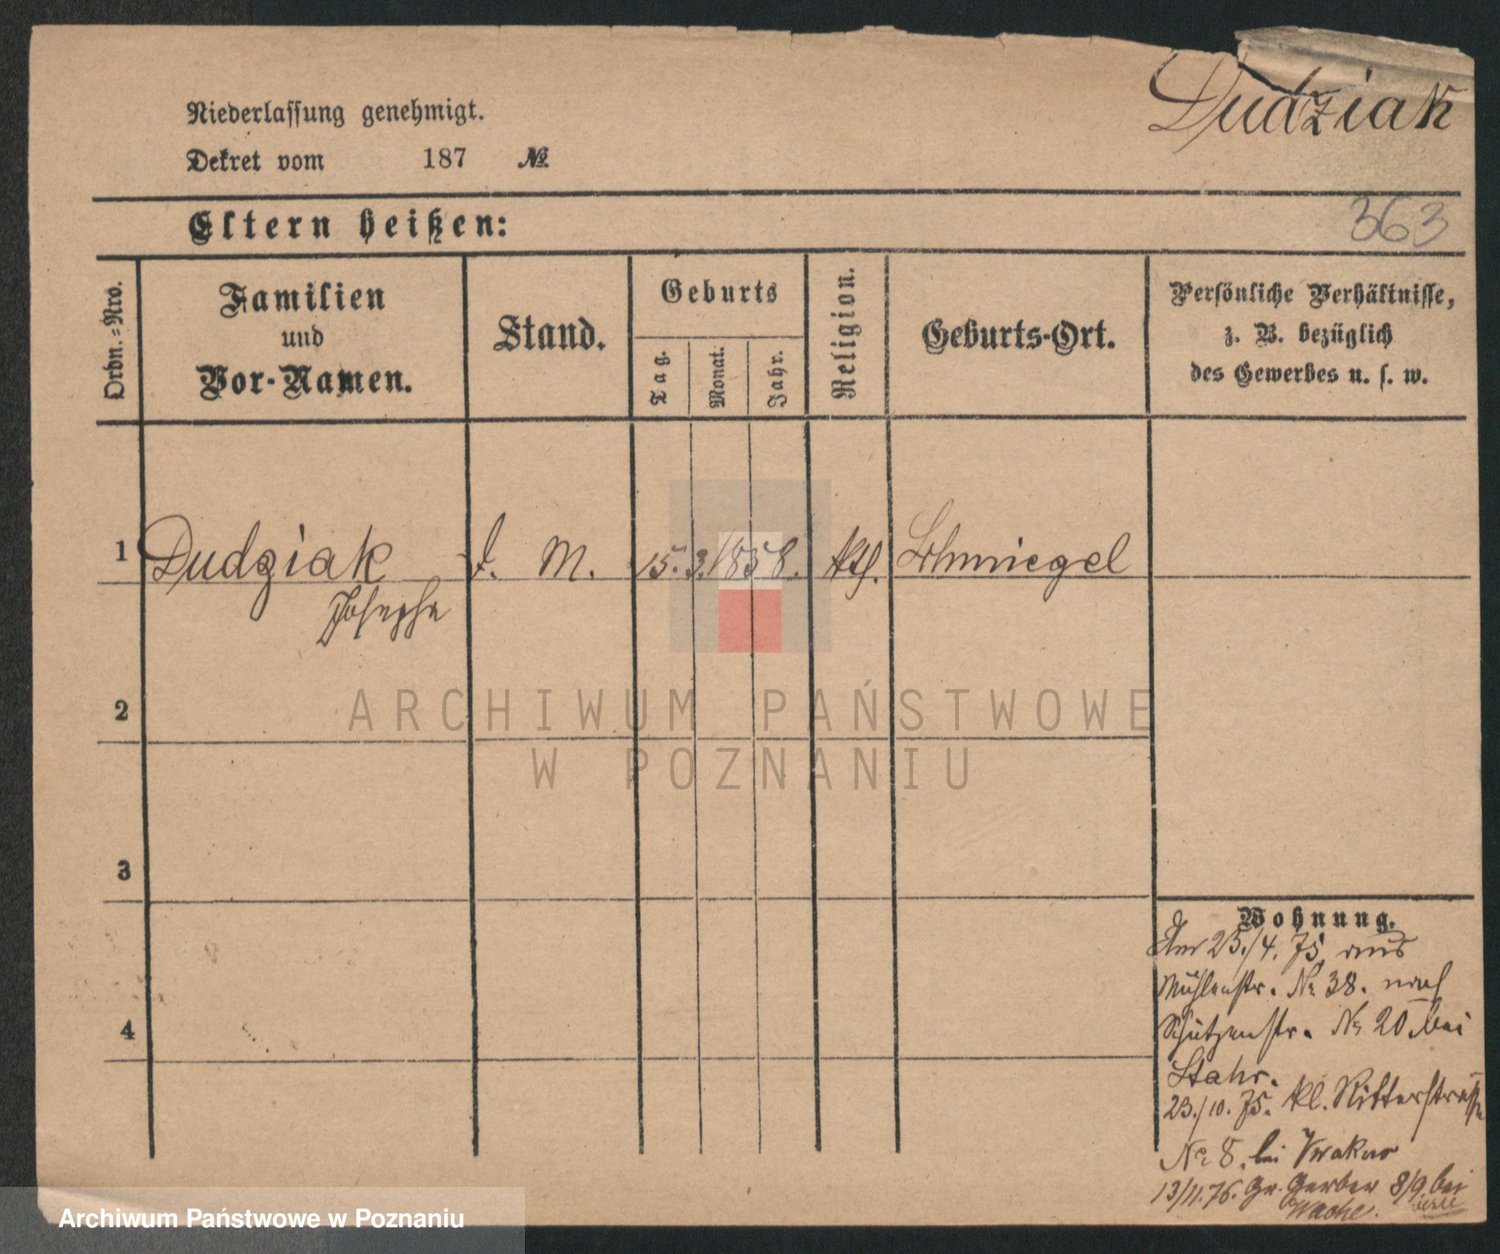 Dudziak
Niederlassung genehmigt.
Dekret vom 187 №
363
Eltern heißen:
Ordn.-Nro.
Familien
und
Vor-Namen.
Stand.
Geburts
Tag.
Monat.
Jahr.
Religion.
Geburts-Ort.
Persönliche Verhältnisse,
z. B. bezüglich
des Gewerbes u. s. w.
1 Dudziak d. M. 15. 3. 1858. kth. Schmiegel
Josepha
2
3
4
Wohnung.
Am 25./4. 75 aus
Mühlenstr. No 38. nach
Schützenstr. No 20 bei
Stahr.
23./10. 75. kl. Ritterstraße
No 8. bei
13/11. 76. Gr. Gerber 8/9. bei
ARCHIWUM PAŃSTWOWE
W POZNANIU
Archiwum Państwowe w Poznaniu